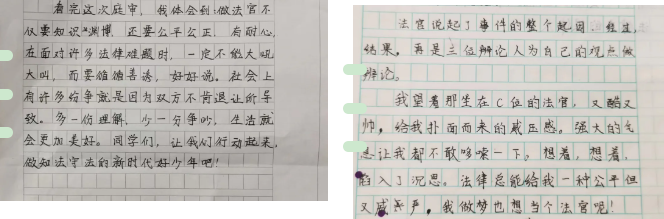 看完这次庭审，我体会到：做法官不
仅要知识渊博，还要公平公正，有耐心，
在面对许多法律难题时，一定不能大吼
大叫，而要循循善诱，好好说。社会上
有许多纷争就是因为双方不肯退让所导
致。多一份理解，少一分争吵，生活就
会更加美好。同学们，让我们行动起来，
做知法守法的新时代好少年吧！
法官说起了事件的整个起因、经过、
结果。再是三位辩论人为自己的观点做
辩论。
我望着那坐在C位的法官，又酷又
帅，给我扑面而来的威压感。强大的气
息让我都不敢哆嗦一下。想着，想着，
陷入了沉思。法律总能给我一种公平但
又威严严，我做梦也想当个法官呢！